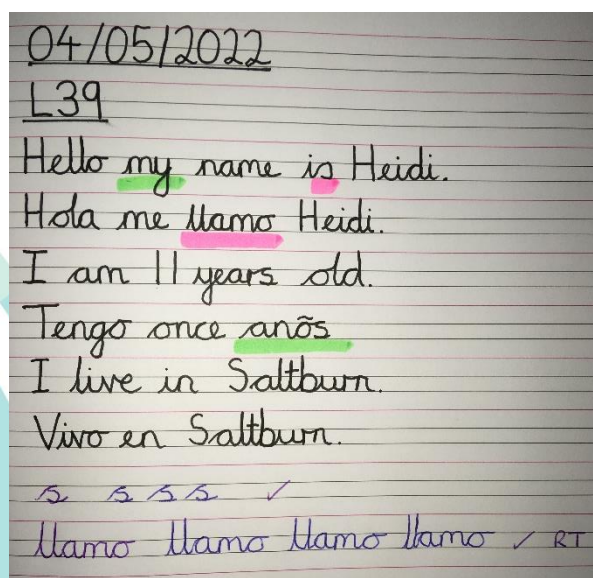 04/05/2022
L39
Hello my name is Heidi.
Hola me llamo Heidi.
I am 11 years old.
Tengo once anõs
I live in Saltburn.
Vivo en Saltburn.
s s s s ✓
llamo llamo llamo llamo ✓ RT